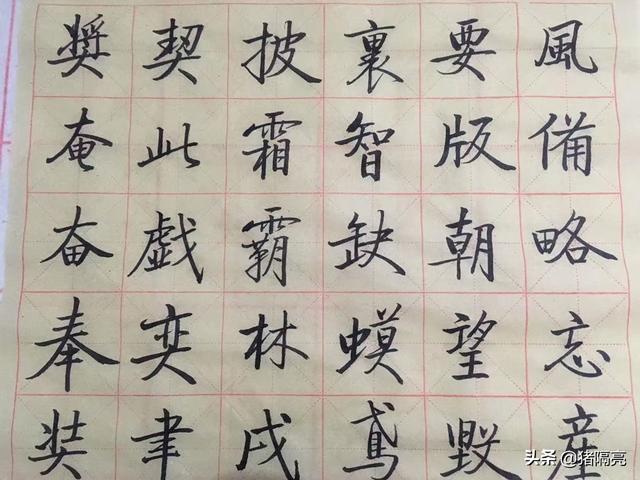 風備略忘産
要版朝望毁
裏智缺蟆鳶
披霜霸林戌
契此戯奕聿
奬奄奋奉奘
头条 @猪隔亮